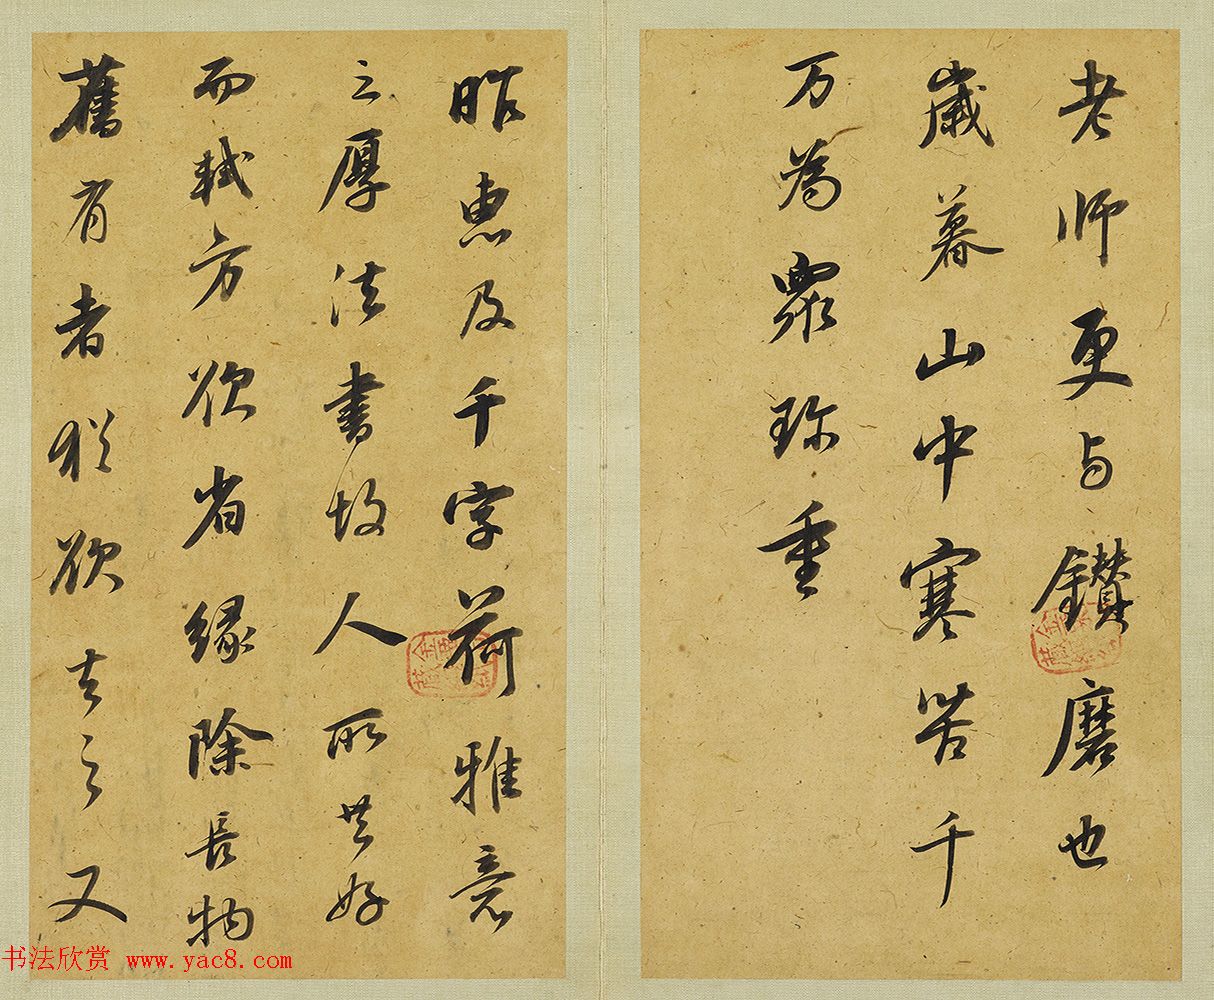 老師更与鑽磨也
歲暮山中寒苦千
万為眾珍重
昨惠及千字荷雅意
之厚法書故人所共好
而軾方欲省緣除長物
舊有者猶欲去之又
书法欣赏 www.yac8.com